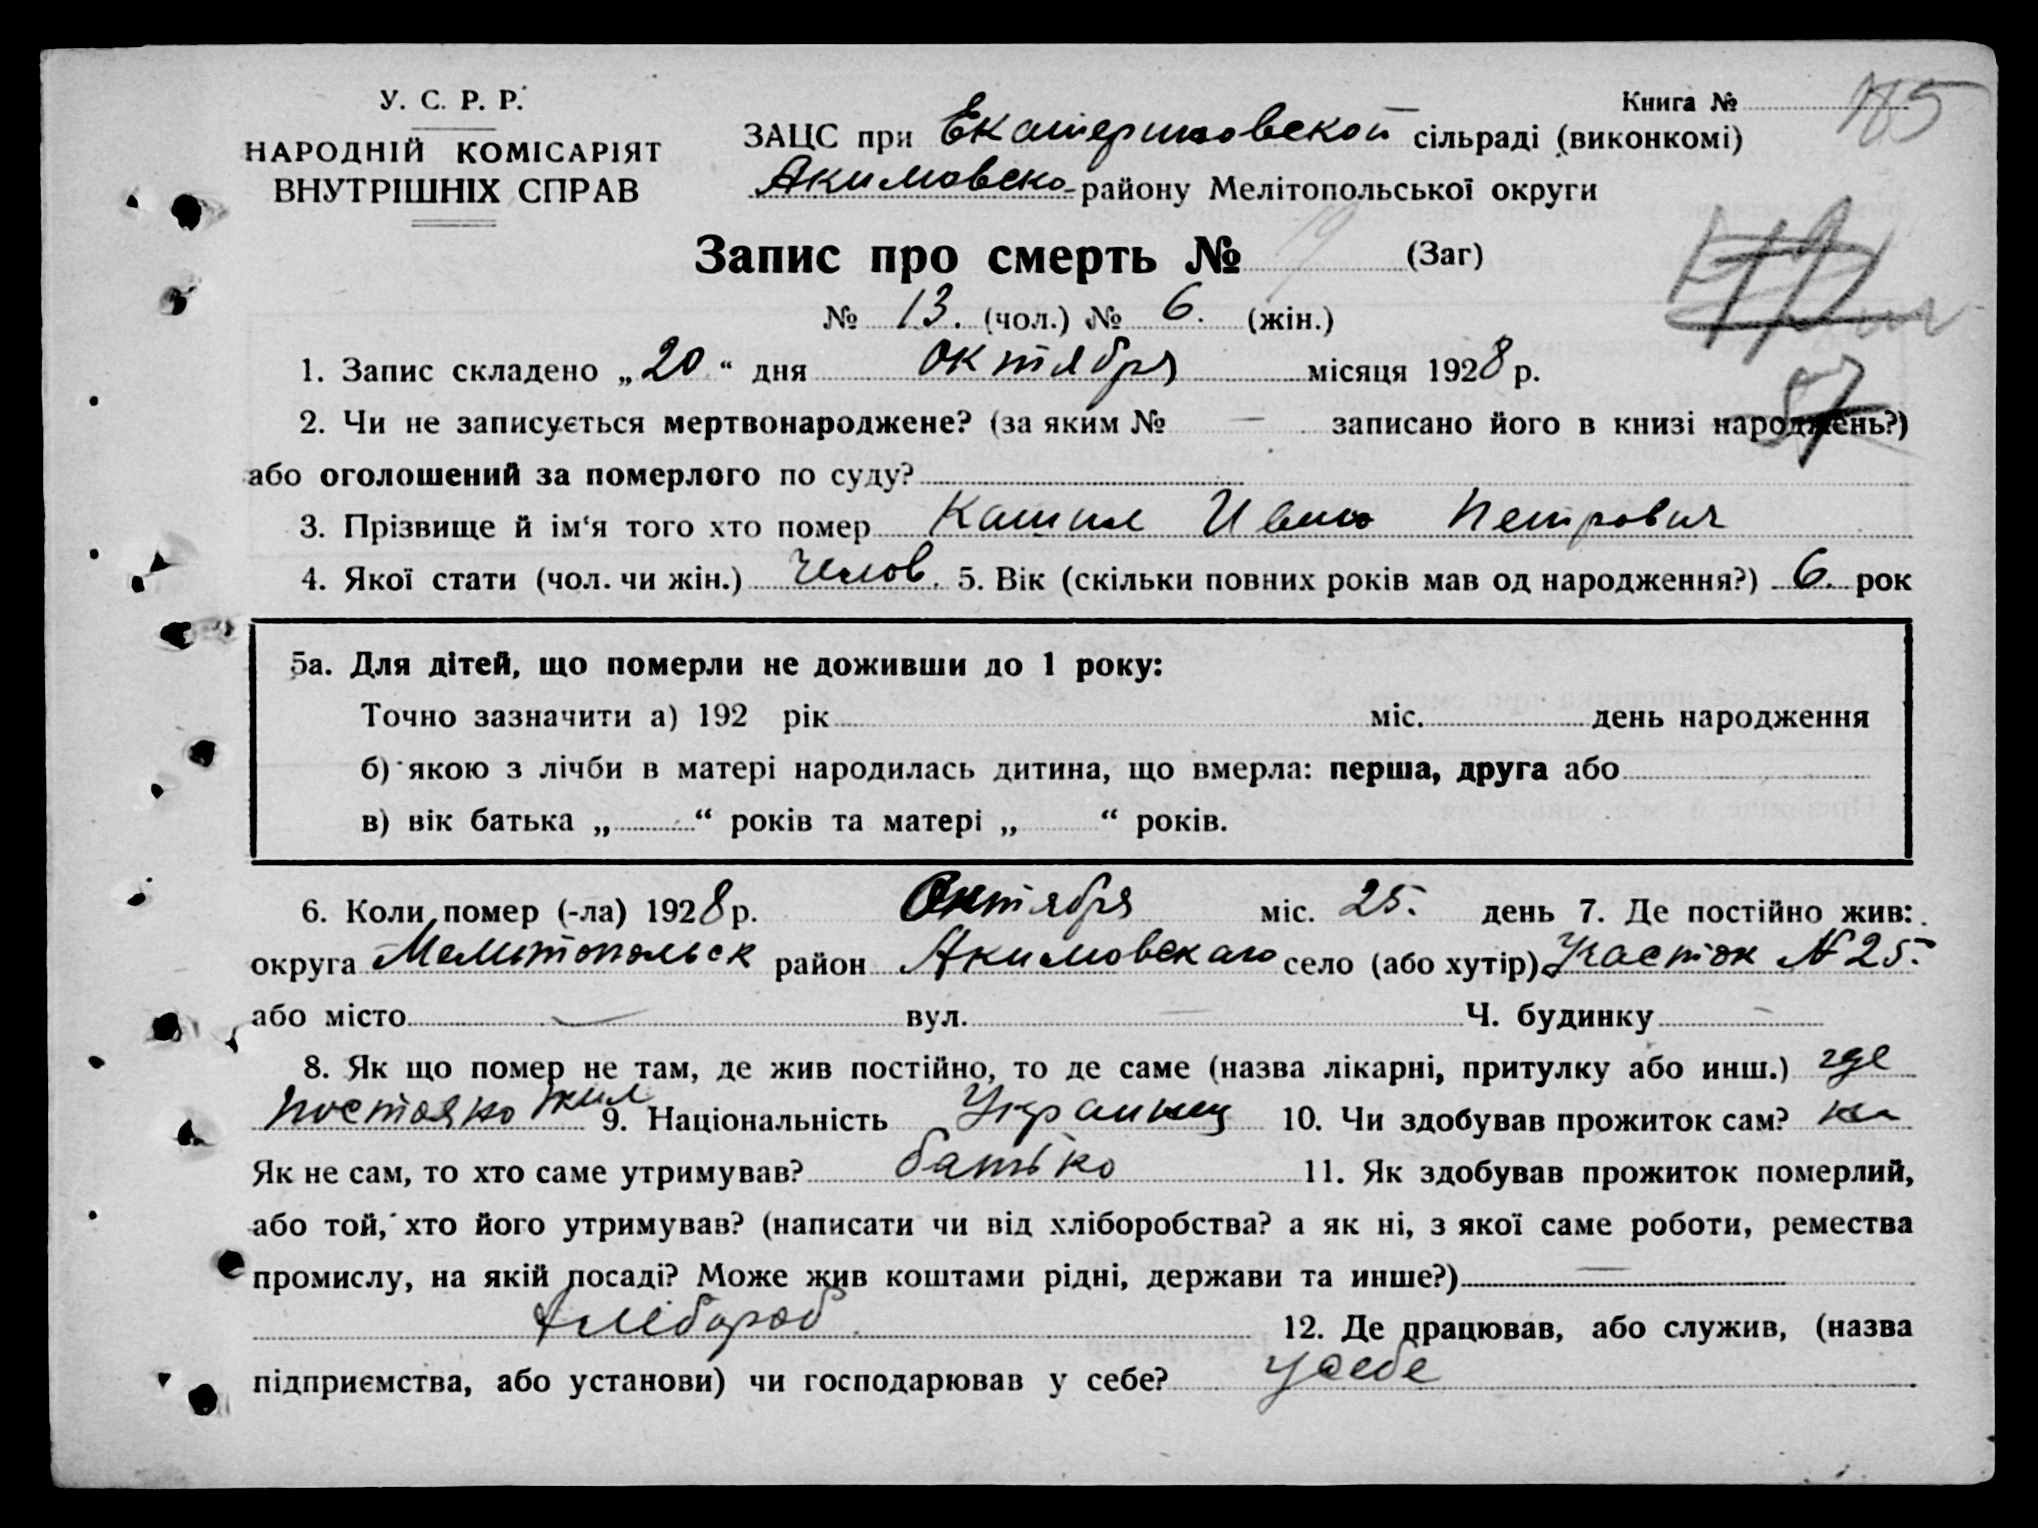 У. С. Р. Р.
НАРОДНІЙ КОМІСАРІЯТ
ВНУТРІШНІХ СПРАВ
Книга №
ЗАЦС при Екатериновской сільраді (виконкомі)
Акимовско- району Мелітопольської округи
Запис про смерть № 19 (Заг)
№ 13. (чол.) № 6. (жін.)
57
1. Запис складено „20“ дня октября місяця 1928 р.
2. Чи не записується мертвонароджене? (за яким № — записано його в книзі народжень?)
або оголошений за померлого по суду?
3. Прізвище й ім‘я того хто помер Иван Петрович
4. Якої стати (чол. чи жін.) Челов. 5. Вік (скільки повних років мав од народження?) 6. рок
5а. Для дітей, що померли не доживши до 1 року:
Точно зазначити а) 192 рік міс. день народження
б) якою з лічби в матері народилась дитина, що вмерла: перша, друга або
в) вік батька „ “ років та матері „ “ років.
6. Коли помер (-ла) 1928 р. Октября міс. 25. день 7. Де постійно жив:
округа Мелитопольск район Акимовскаго село (або хутір) Участок № 25.
або місто — вул. — Ч. будинку —
8. Як що помер не там, де жив постійно, то де саме (назва лікарні, притулку або инш.) где
постояно жил 9. Національність Украинец 10. Чи здобував прожиток сам?
Як не сам, то хто саме утримував? батько 11. Як здобував прожиток померлий,
або той, хто його утримував? (написати чи від хліборобства? а як ні, з якої саме роботи, ремества
промислу, на якій посаді? Може жив коштами рідні, держави та инше?) —
хлебороб 12. Де працював, або служив, (назва
підприємства, або установи) чи господарював у себе? у себе